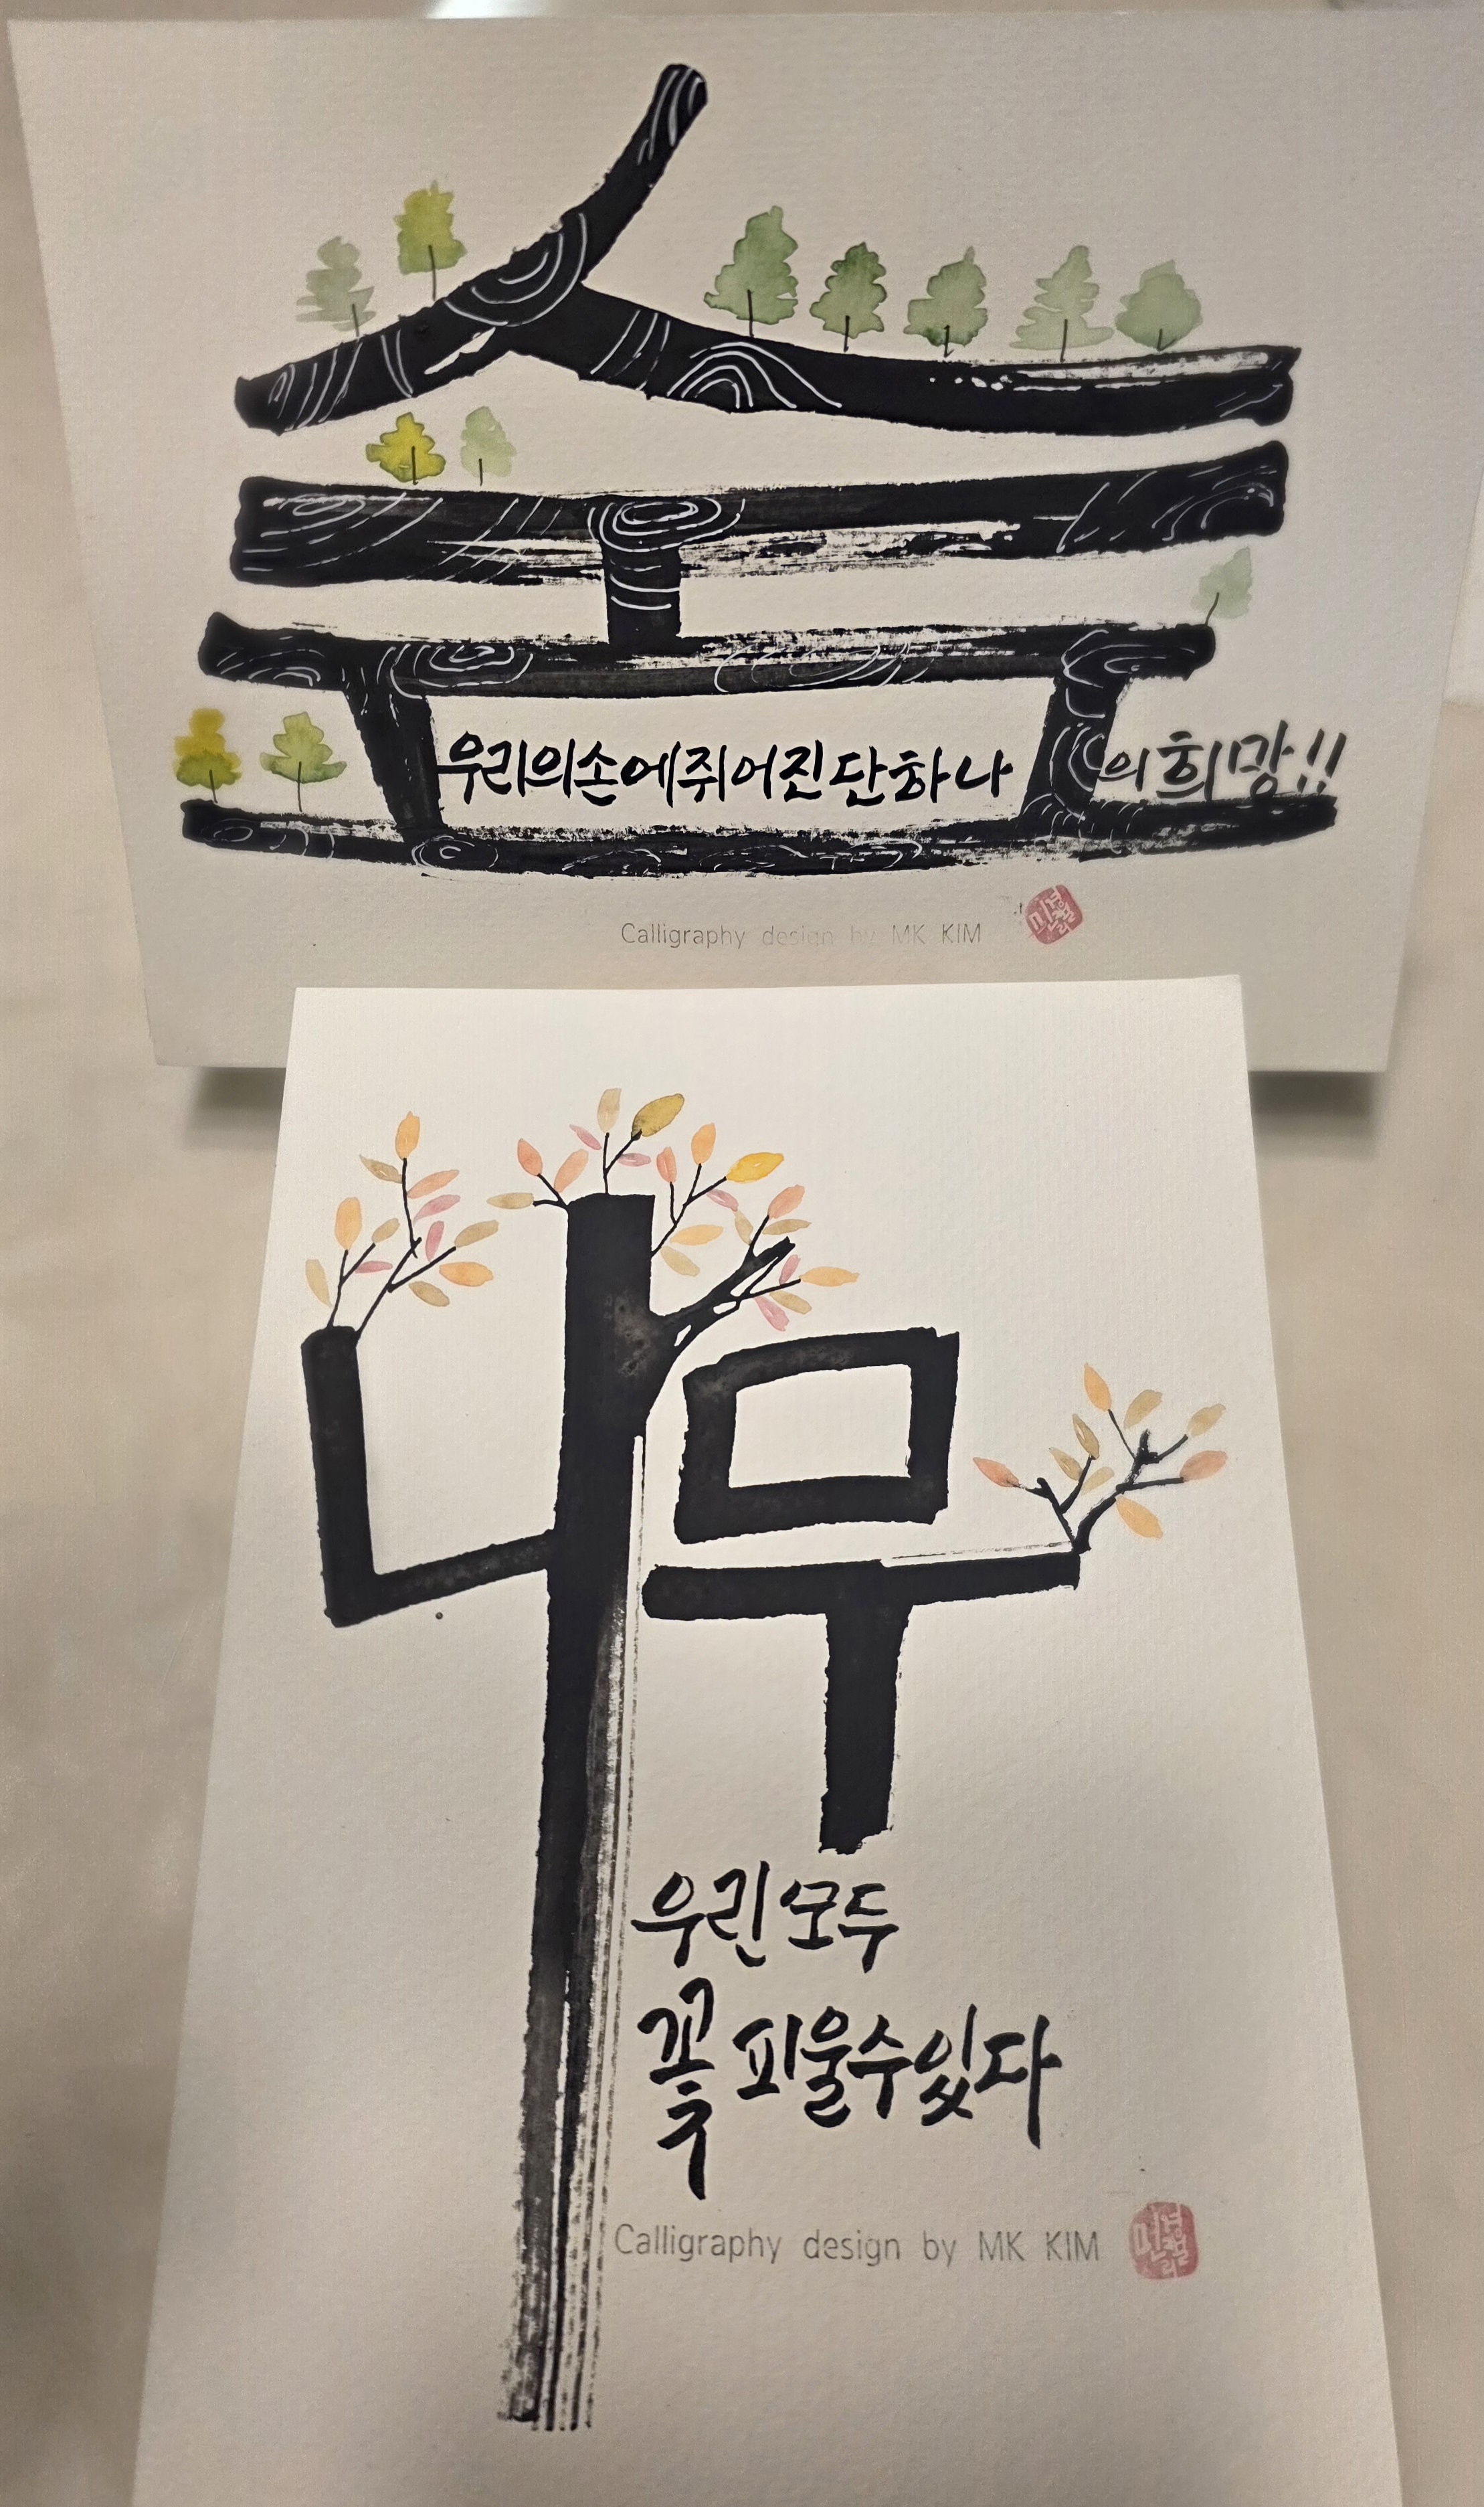 숲
우리의손에쥐어진단하나의희망!!
Calligraphy design by MK KIM
나무
우린모두
꽃 피울수있다
Calligraphy design by MK KIM